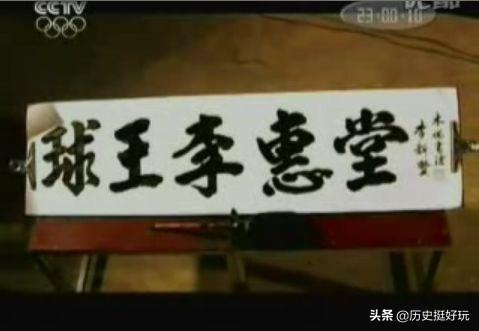 CCTV
23:00:10
球王李惠堂
头条 @历史挺好玩